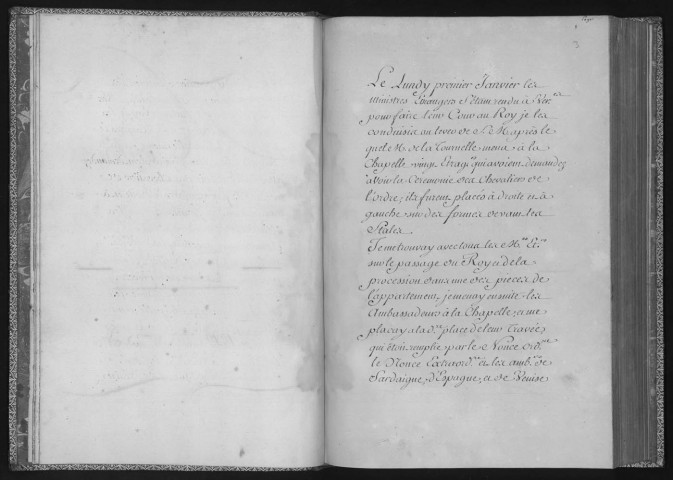 3
Le Lundy premier Janvier les
ministres Etrangers s'étant rendu à Ver.es
pour faire leur Cour au Roy je les
conduisis au lever de S. M. après le
quel M. de la Tournelle mena à la
Chapelle vingt Etrag.rs qui avoient demandez
a voir la Ceremonie des Chevaliers de
l'ordre; ils furent placés à droite et à
gauche sur des formes devant les
Stales.
Je me trouvay avec tous les M.es Et.rs
sur le passage du Roy et de la
procession dans une des pieces de
l'appartement, je menay ensuite les
Ambassadeurs à la Chapelle, et me
plaçay a la d.re place de leur Travée,
qui étoit remplie par le Nonce ord.re
le Nonce Extraord.re et les amb.rs de
Sardaigne, d'Espagne, et de Venise